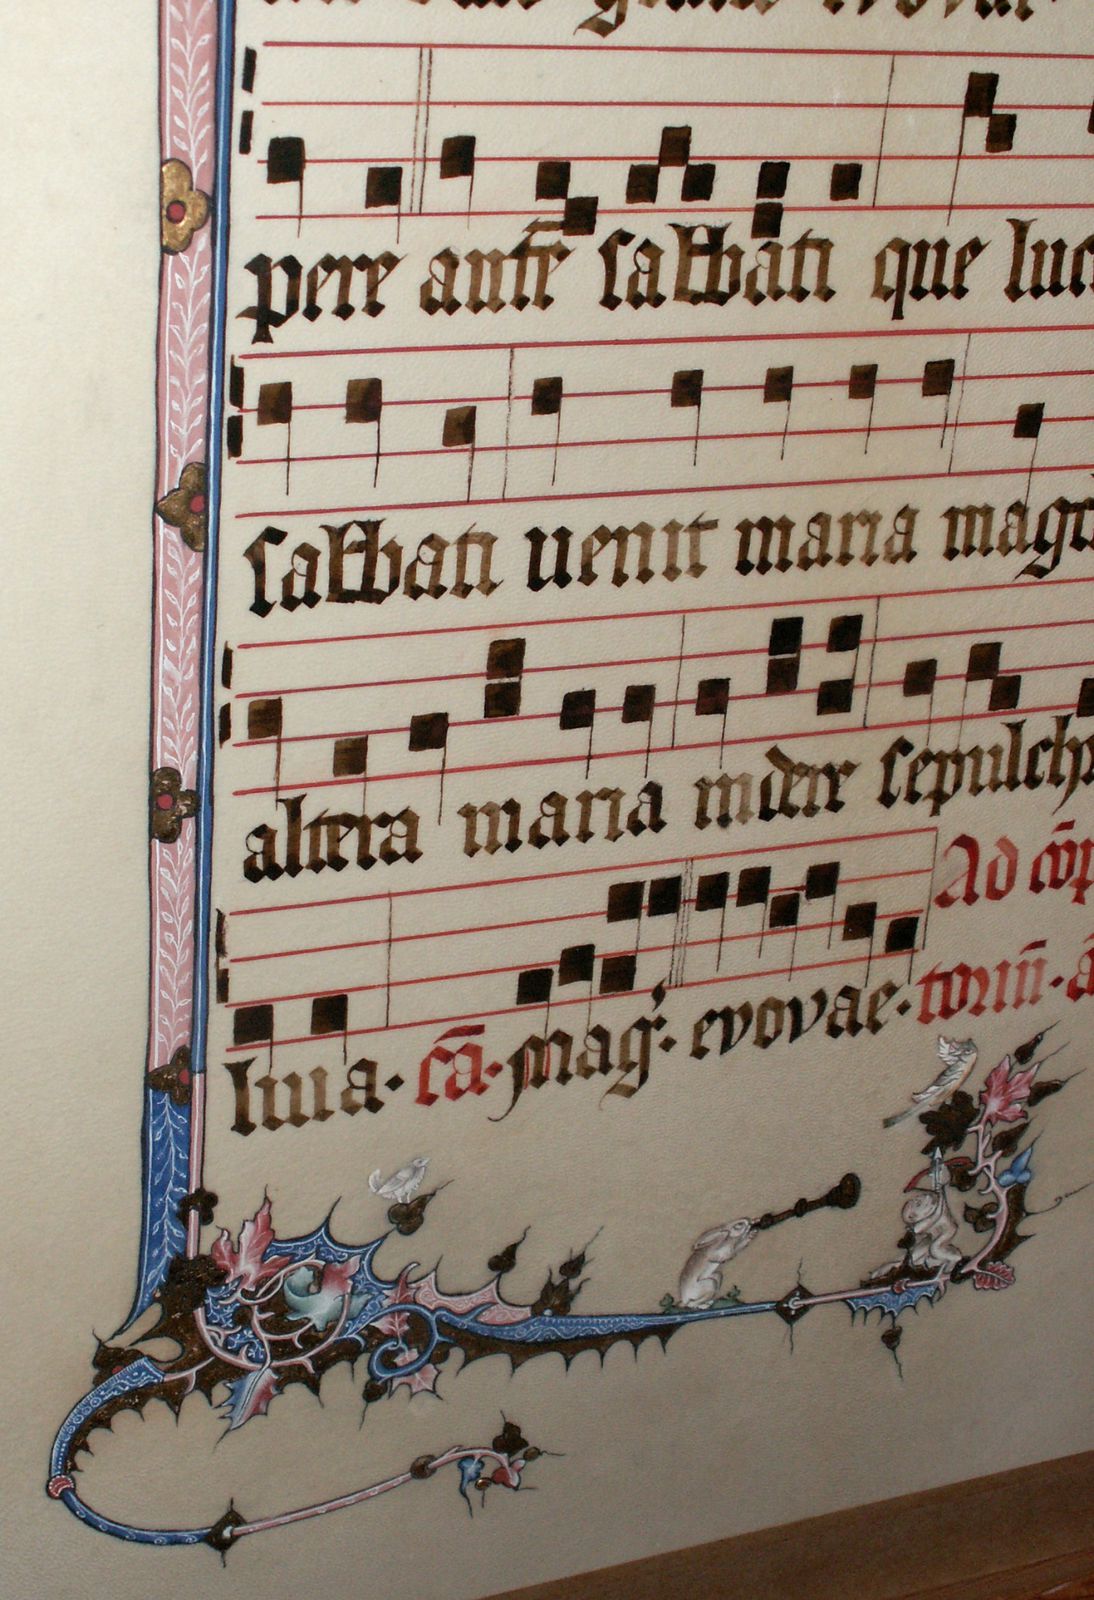 pere autē sabbati que luc
sabbati uenit maria magd
altera maria uidere sepulchr
luia · cā · mag̃ · evovae · Ad cōp
toriū · ā